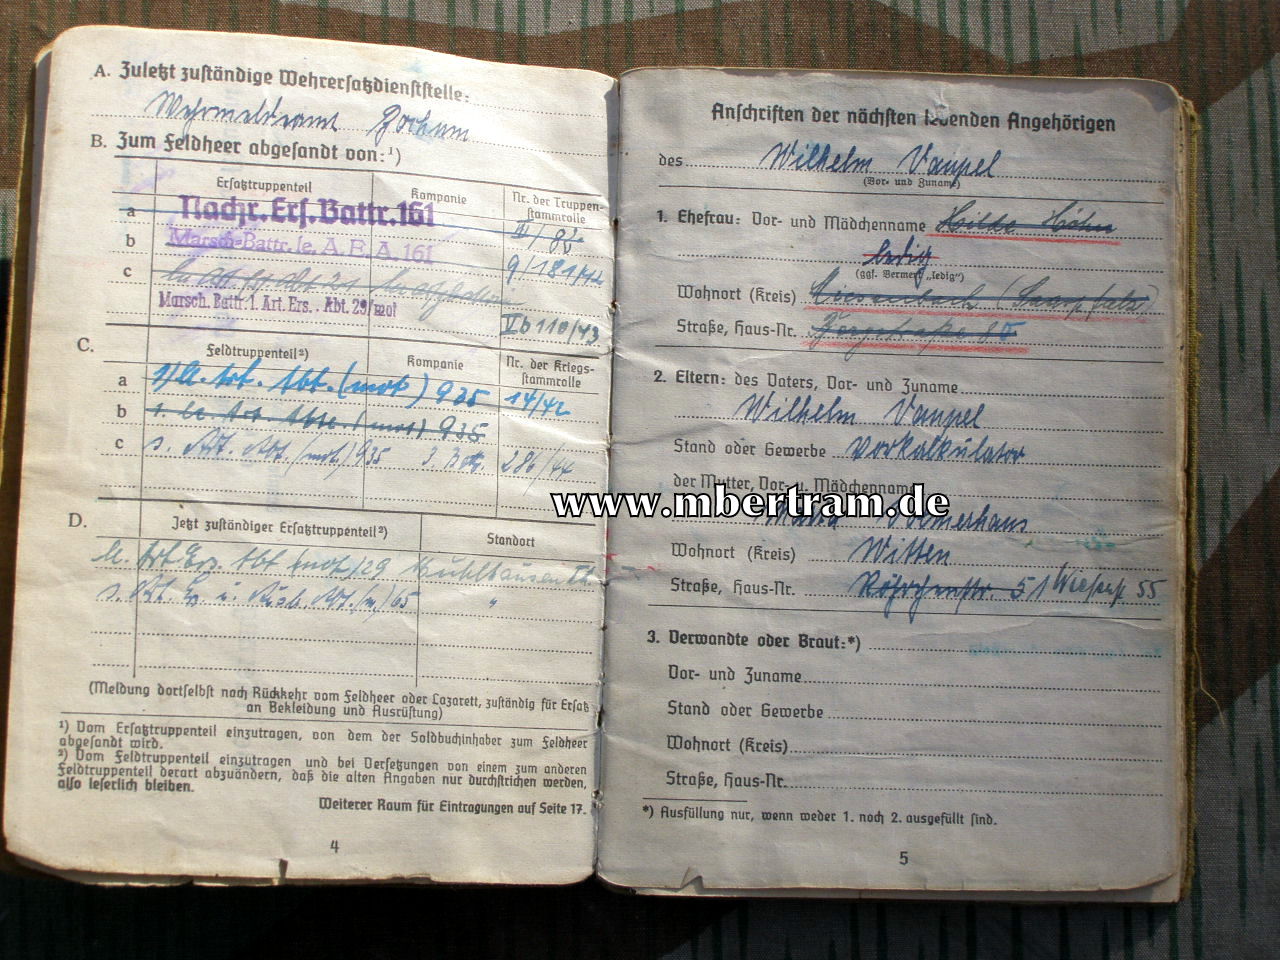 A. Zuletzt zuständige Wehrersatzdienststelle:
Wehrmeldeamt Bochum
B. Zum Feldheer abgesandt von:¹)
Ersatztruppenteil Kompanie Nr. der Truppen-
stammrolle
a Nachr. Ers. Battr. 161
b Marsch-Battr. le. A. E. A. 161 9/181/42
c
Marsch. Battr. 1. Art. Ers.-Abt. 29/mot Vb 110/43
C. Feldtruppenteil²) Kompanie Nr. der Kriegs-
stammrolle
a Art. Abt. (mot) 935 14/42
b Art. Abt. (mot) 935
c s. Art. Abt. (mot.) 935 3. Battr. 286/44
D. Jetzt zuständiger Ersatztruppenteil²) Standort
le. Art. Ers. Abt (mot) 29 Mühlhausen Th.
s. Art. Ers. u. Ausb. Abt. (m.) 65 "
(Meldung dortselbst nach Rückkehr vom Feldheer oder Lazarett, zuständig für Ersatz
an Bekleidung und Ausrüstung)
¹) Vom Ersatztruppenteil einzutragen, von dem der Soldbuchinhaber zum Feldheer
abgesandt wird.
²) Vom Feldtruppenteil einzutragen und bei Versetzungen von einem zum anderen
Feldtruppenteil derart abzuändern, daß die alten Angaben nur durchstrichen werden,
also leserlich bleiben.
Weiterer Raum für Eintragungen auf Seite 17.
4
Anschriften der nächsten lebenden Angehörigen
des Wilhelm Vaupel
(Vor- und Zuname)
1. Ehefrau: Vor- und Mädchenname Hilde Höhn
ledig
(ggf. Vermerk „ledig")
Wohnort (Kreis) (Saarpfalz)
Straße, Haus-Nr. Bergstraße 80
2. Eltern: des Vaters, Vor- und Zuname
Wilhelm Vaupel
Stand oder Gewerbe Vorkalkulator
der Mutter, Vor- u. Mädchenname
www.mbertram.de
Wohnort (Kreis) Witten
Straße, Haus-Nr. Röhrchenstr. 51 55
3. Verwandte oder Braut:*)
Vor- und Zuname
Stand oder Gewerbe
Wohnort (Kreis)
Straße, Haus-Nr.
*) Ausfüllung nur, wenn weder 1. noch 2. ausgefüllt sind.
5